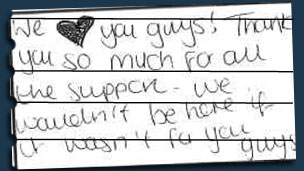 We ♥ you guys! Thank
you so much for all
the support - we
wouldn't be here if
it wasn't for you guys